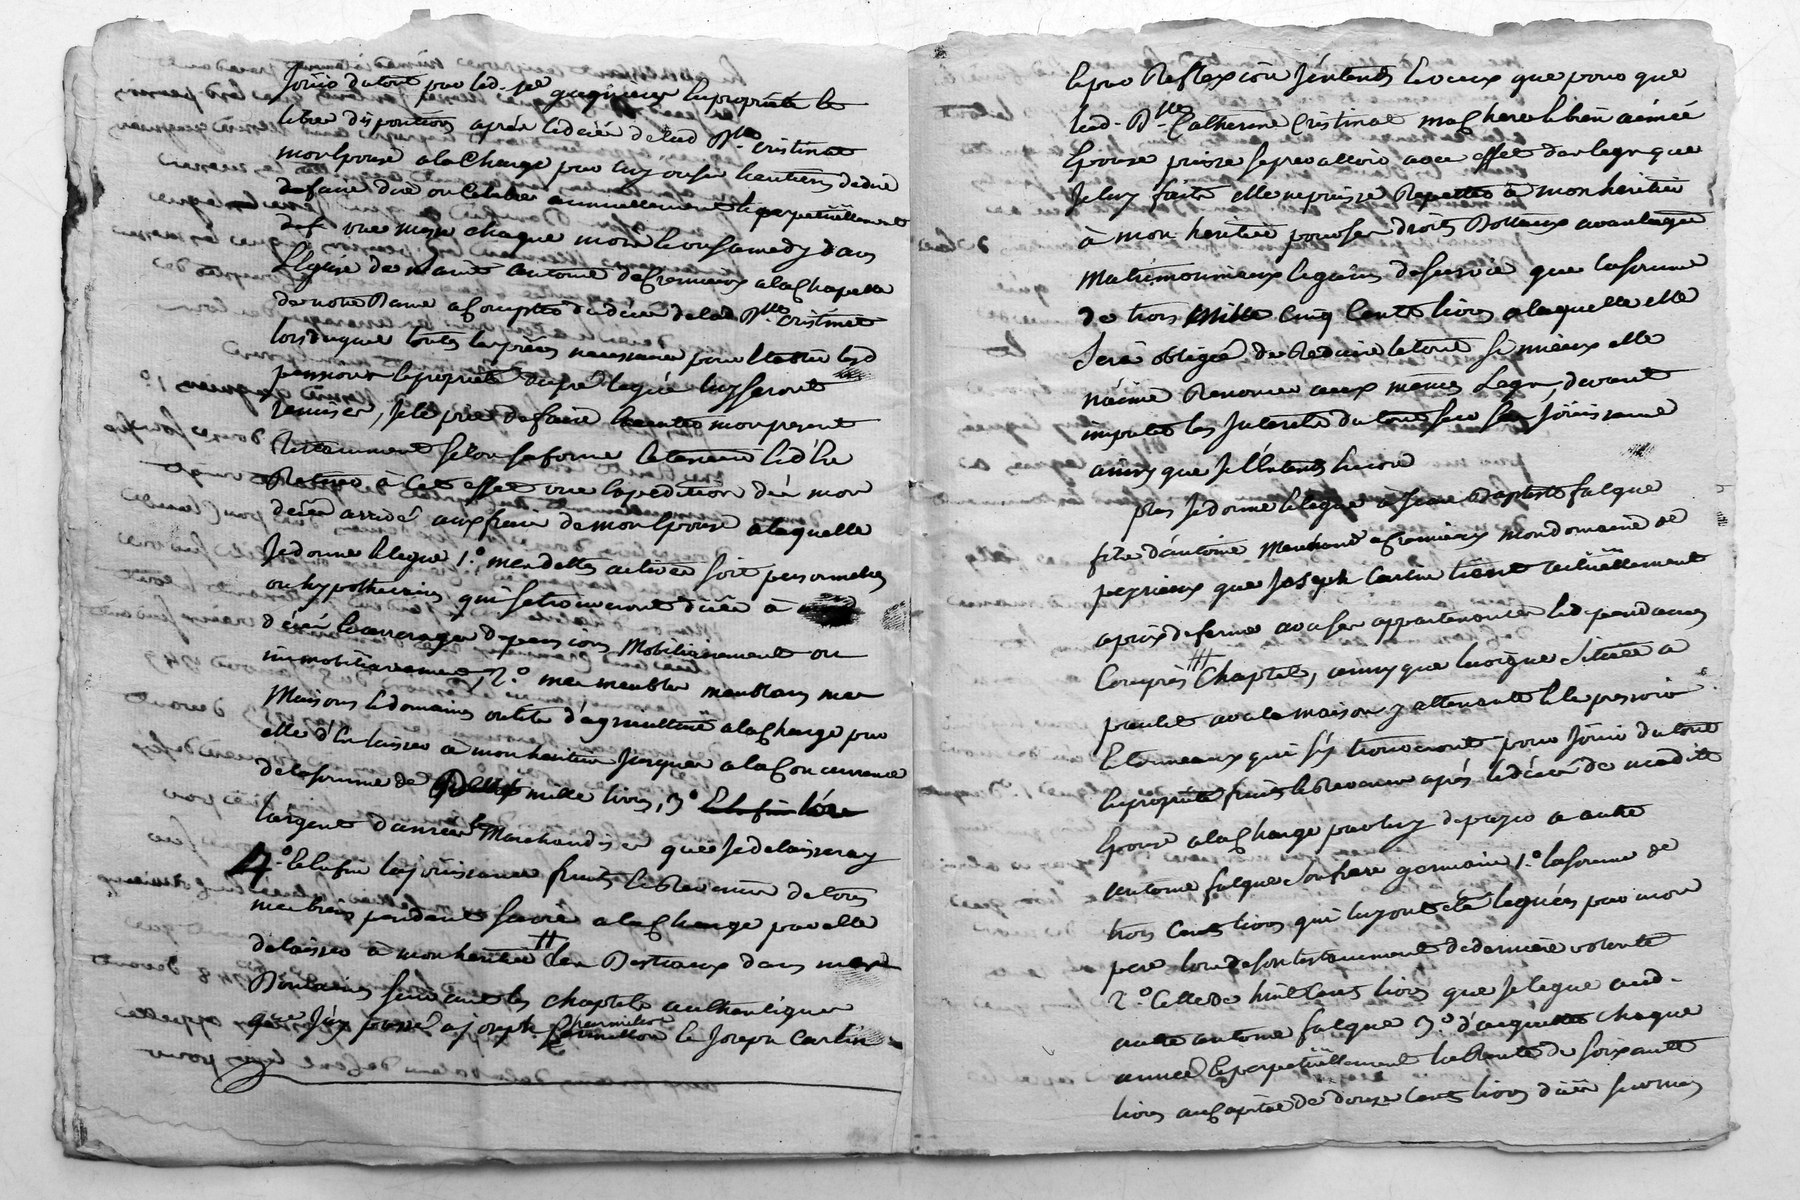 Jouir du tout par led. Sr et la propriété et
libre disposition après le décès de lad. Dlle. Cristinat
mon Epouse a la Charge par luy ou ses heritiers de dire
de faire dire ou Celebrer annuellement et perpetuellement
une messe chaque mois le un Samedy dans
L'Eglise de Saint Antoine de Cremieux a la Chapelle
de notre Dame a Compter du décès de lad. Dlle. Cristinat
lors duquel toutes les pièces necessaires pour led
la propriété du pré legué luy seront
remises, Je le prie de faire mon present
Testament selon sa forme et teneur et d'En
Retirer à Cet effet une Expedition dès mon
décès arrivé aux frais de mon Epouse a laquelle
Je donne et legue 1.° mes dettes actives soit personnelles
ou hypothecaires qui se trouveront dües à
décès Les arrerages de pensions Mobiliairement ou
immobiliairement, 2.° mes meubles meublans mes
Maisons et domaines outils d'agriculture a la Charge par
elle d'En laisser à mon heritier Jusques a la Concurrence
de la somme de mille livres, 3.° Et enfin
L'argent danrées et Marchandises que Je delaisseray
4.° Et enfin la jouissance fruits et Revenus de tous
mes biens pendant sa vie a la Charge par elle
de laisser à mon heritier les Bestiaux dans mes
Domaines suivant les chaptels authentiques
que J'ay passé a Joseph Charmillon et Joseph Carlin
et par Reflexion J'entends et veux que pour que
lad. Dlle. Catherine Cristinat ma Chere et bien aimée
Epouse puisse se prevalloir avec effet des legs que
Je luy faits elle ne puisse Repetter à mon heritier
à mon heritier pour ses droits Dottaux avantages
Matrimoniaux et gains de survie que la somme
de trois Mille Cinq Cents livres a laquelle elle
Sera obligée de Reduire le tout Si mieux elle
n'aime Renoncer aux mêmes Legs, devant
imputer les Interets du tout sur sa Jouissance
ainsy que Je l'Entends encore
plus Je donne et legue à Jean Baptiste falque
fils d'antoine Marchand a Cremieux mon domaine de
peyrieux que Joseph Carlin tient actuellement
a prix de ferme avec ses appartenances et dependances
Compris Chaptel, ainsy que la vigne Située a
avec la maison y attenante et le pressoir
et tonneaux qui s'y trouveront pour Jouir du tout
en propriété fruits et Revenus après le décès de madite
Epouse a la Charge par luy de payer a autre
antoine falque son frere germain 1.° la somme de
trois Cents livres qui luy ont été leguées par mon
pere lors de son testament de derniere volonté
2.° Celle de huit Cents livres que Je legue aud.
autre antoine falque 3.° d'acquitter chaque
année et perpetuellement la Rente de soixante
livres au Capital de douze Cents livres düe